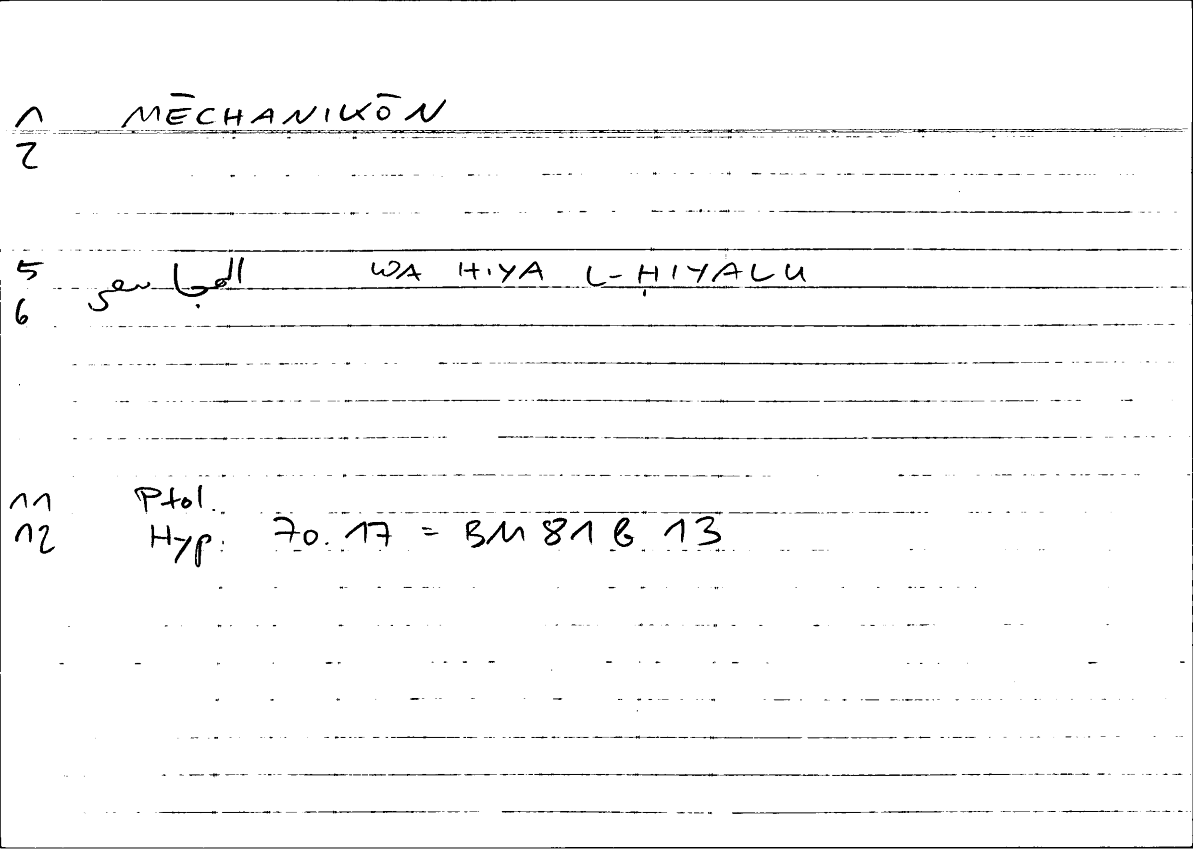 1 MĒCHANIKŌN
2
5 WA HIYA L-ḤIYALU
6
11 Ptol.
12 Hyp. 70.17 = BM 81 b 13